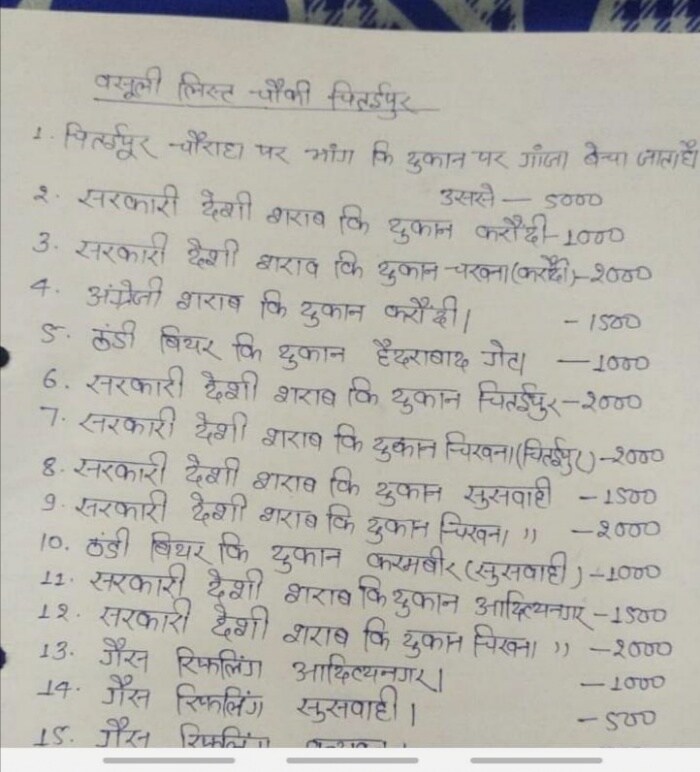 वसूली लिस्ट चौकी चितईपुर
1. चितईपूर चौराहा पर भांग कि दुकान पर गांजा बेचा जाता है
उससे — 5000
2. सरकारी देशी शराब कि दुकान करौंदी - 1000
3. सरकारी देशी शराब कि दुकान चखना (करौंदी) - 2000
4. अंग्रेजी शराब कि दुकान करौंदी। - 1500
5. ठंडी बियर कि दुकान हैदराबाद गेट। — 1000
6. सरकारी देशी शराब कि दुकान चितईपुर - 2000
7. सरकारी देशी शराब कि दुकान चिखना (चितईपुर) - 2000
8. सरकारी देशी शराब कि दुकान सुसवाही - 1500
9. सरकारी देशी शराब कि दुकान चिखना। " - 2000
10. ठंडी बियर कि दुकान करमबीर (सुसवाही) - 1000
11. सरकारी देशी शराब कि दुकान आदित्यनगर - 1500
12. सरकारी देशी शराब कि दुकान चिखना " - 2000
13. गैस रिफलिंग आदित्यनगर। - 1000
14. गैस रिफलिंग सुसवाही। - 500
15. गैस रिफलिंग